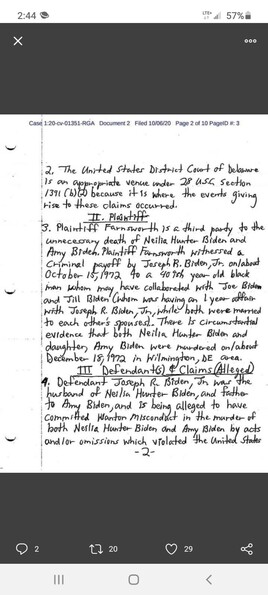 2:44
LTE+
57%
Case 1:20-cv-01351-RGA Document 2 Filed 10/06/20 Page 2 of 10 PageID #: 3
2. The United States District Court of Delaware
is an appropriate venue under 28 U.S.C. Section
1391 (b)(2) because it is where the events giving
rise to these claims occurred.
II. Plaintiff
3. Plaintiff Farnsworth is a third party to the
unnecessary death of Neilia Hunter Biden and
Amy Biden. Plaintiff Farnsworth witnessed a
Criminal payoff by Joseph R. Biden, Jr. on/about
October 15, 1972 to a 40ish year old black
man whom may have collaborated with Joe Biden
and Jill Biden (whom was having an 1 year affair
with Joseph R. Biden, Jr, while both were married
to each other's spouses). There is circumstantial
evidence that both Neilia Hunter Biden and
daughter, Amy Biden were murdered on/about
December 18, 1972 in Wilmington, DE area.
III Defendant(s) & Claims (Alleged)
4. Defendant Joseph R. Biden, Jr. was the
husband of Neilia Hunter Biden, and father
to Amy Biden, and is being alleged to have
committed Wanton Misconduct in the murder of
both Neilia Hunter Biden and Amy Biden by acts
and/or omissions which violated the United States
-2-
2
20
29